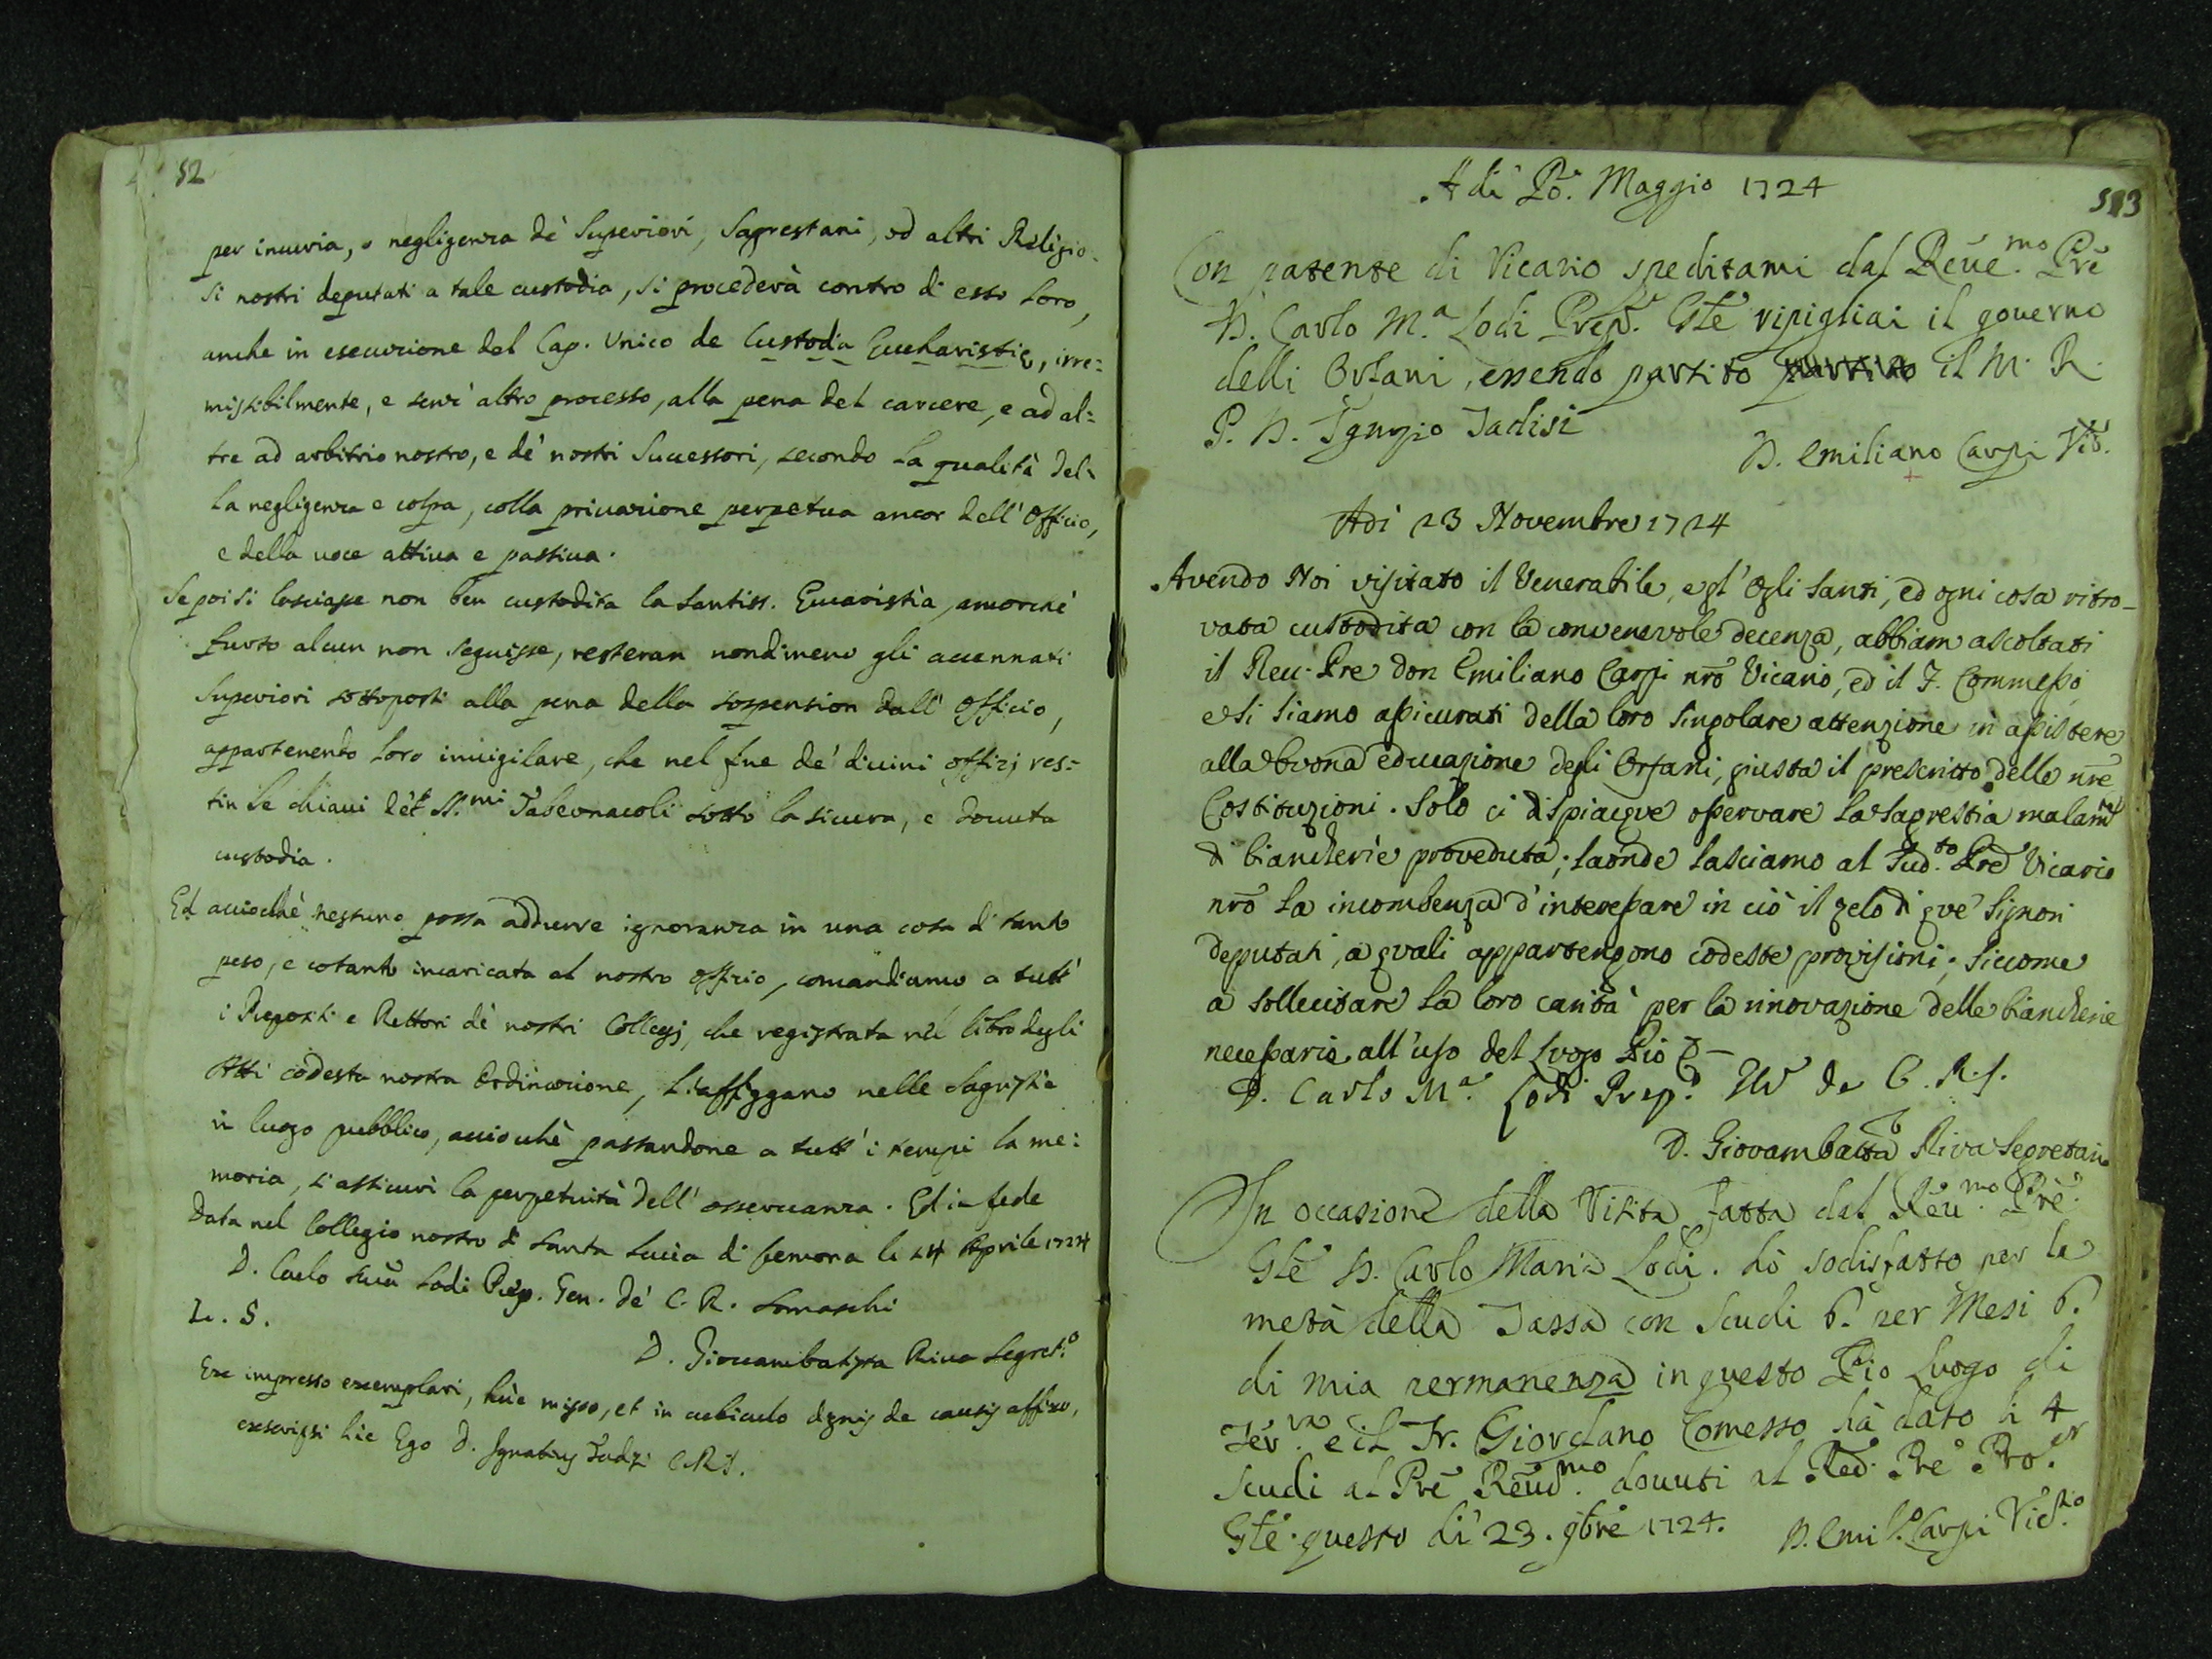 52
per incuria, o negligenza dè Superiori, Sagrestani, od altri Religio-
si nostri deputati a tale custodia, si procederà contro di esso loro,
anche in esecuzione del Cap. Unico de Custodia Eucharistię, irre=
missibilmente, e senz' altro processo, alla pena del carcere, e ad al=
tre ad arbitrio nostro, e dè nostri Successori, secondo la qualità del=
la negligenza e colpa, colla privazione perpetua ancor dell' Officio,
e della voce attiva e passiva.
Se poi si lasciasse non ben custodita la Santiss. Eucaristìa, ancorchè
furto alcun non seguisse, resteran nondimeno gli accennati
Superiori sottoposti alla pena della sospension dall' Officio,
appartenendo loro invigilare, che nel fine de' divini offizj res=
tin le chiavi dè SS.mi Tabernacoli sotto la sicura, e dovuta
custodia.
Ed acciocchè nessuno possa addurre ignoranza in una cosa di tanto
peso, e cotanto incaricata al nostro offizio, comandiamo a tutt'
i Preposti e Rettori dè nostri Collegj, che registrata nel libro degli
Atti codesta nostra Ordinazione, s'affiggano nelle Sagristie
in luogo pubblico, acciocchè passandone a tutt' i tempi la me=
moria, s'assicuri la perpetuità dell' osservanza. Ed in fede
Data nel Collegio nostro di Santa Lucia di Cremona li 24 Aprile 1724
D. Carlo Lodi Prep. Gen. de' C. R. Somaschi
L. S.
D. Giovambatista Riva Segret.o
Ex impresso exemplari, hùc misso, et in cubiculo dgnis de causis affixo,
exscripsi hic Ego D. Ignatius Tadisi C.R.S.
53
A di Po. Maggio 1724
Con patente di Vicario speditami dal Reve.mo Prē
D. Carlo M.a Lodi Prep. Glē ripigliai il governo
delli Orfani, essendo partito il M. R.
P. D. Ignazio Tadisi
D. Emiliano Carpi Vic.
Adi 23 Novembre 1724
Avendo Noi visitato il Venerabile, e gl' Ogli santi, ed ogni cosa ritro-
vata custodita con la convenevole decenza, abbiam ascoltati
il Rev. Pre don Emiliano Carpi nrō Vicario, ed il F. Commesso,
e si siamo assicurati della loro singolare attenzione in assistere
alla buona educazione degli Orfani, giusta il prescritto delle nrē
Costituzioni. Solo ci dispiacque osservare la sagrestia malamte
di biancherie proveduta; laonde lasciamo al sud.to Pre Vicario
nrō la incombenza d' interessare in ciò il zelo di que' Signori
deputati, a quali appartengono codeste provisioni; siccome
a sollecitare la loro carità per la rinovazione delle biancherie
necessarie all' uso del luogo Pio
D. Carlo M.a Lodi Prep. Gle de C. R. S.
D. Giovambatta Riva Segretario
In occasione della Visita fatta dal Rev.mo Prē
Glē D. Carlo Maria Lodi. hò sodisfatto per la
metà della Tassa con scudi 6. per Mesi 6.
di mia permanenza in questo Pio Luogo di
e il Fr. Giordano Comesso hà dato li 4
scudi al Prē Revd.mo dovuti al Red. Pre Pro.er
Glē. questo dì 23. 9bre 1724. D. Emil.o Carpi Vic.rio